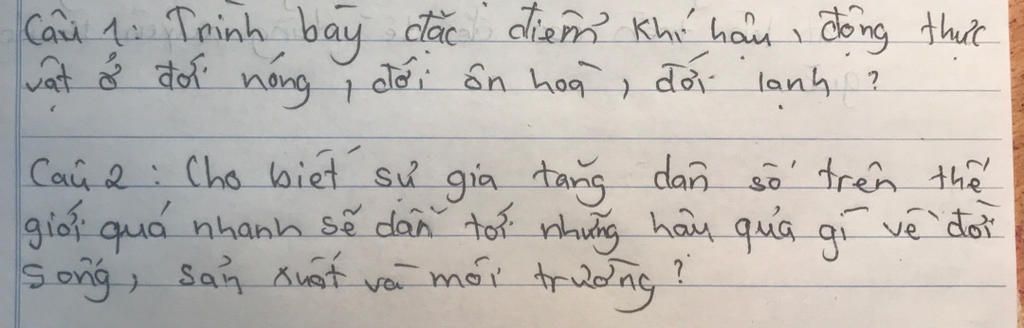 Câu 1: Trình bày đặc điểm khí hậu, động thực
vật ở đới nóng, đới ôn hoà, đới lạnh?
Câu 2: Cho biết sự gia tăng dân số trên thế
giới quá nhanh sẽ dẫn tới những hậu quả gì về đời
sống, sản xuất và môi trường?